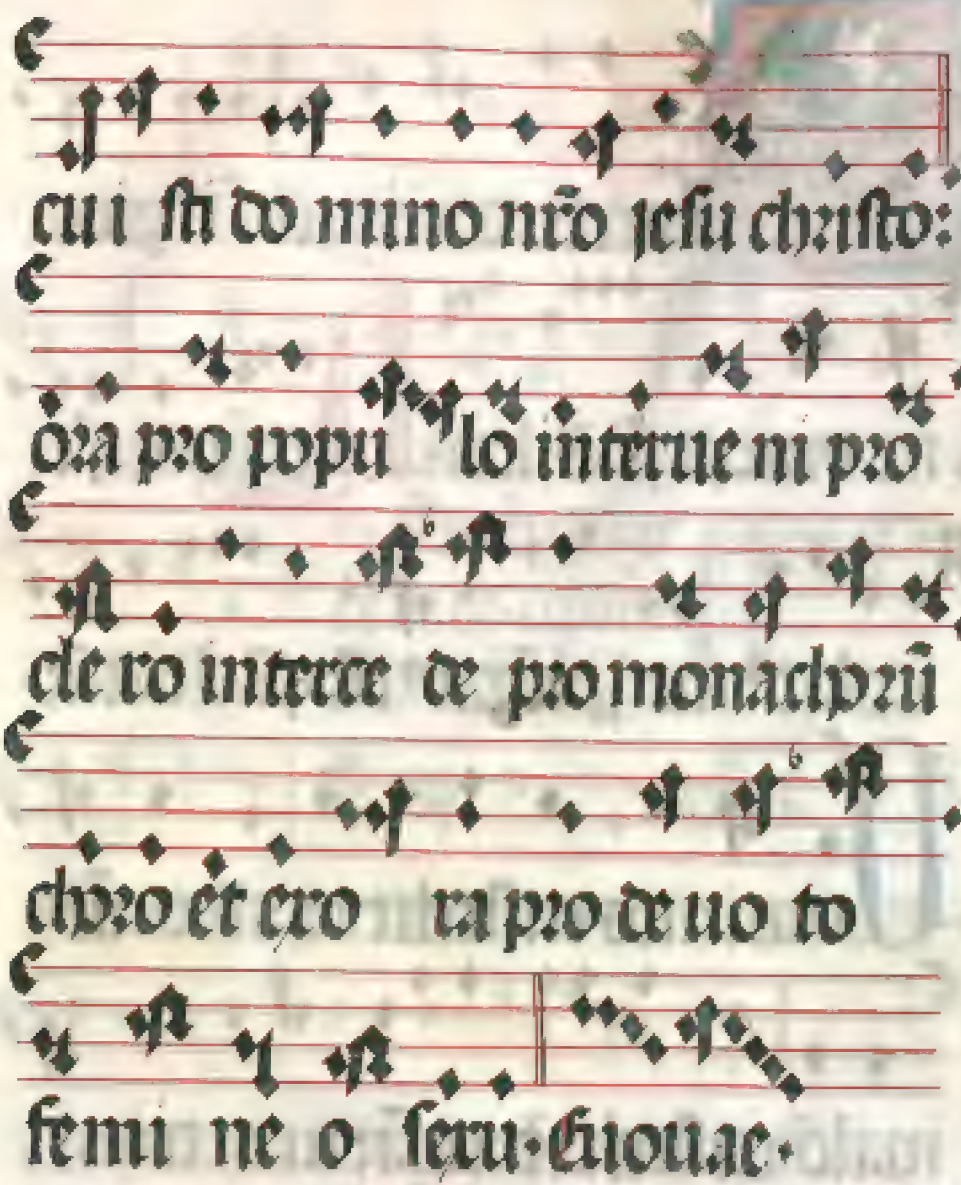 cui sti do mino nr̃o jesu christo:
ora pro popu lo interue ni pro
cle ro interce de pro monachorũ
choro et exo ra pro de uo to
femi ne o sexu. Euouae.